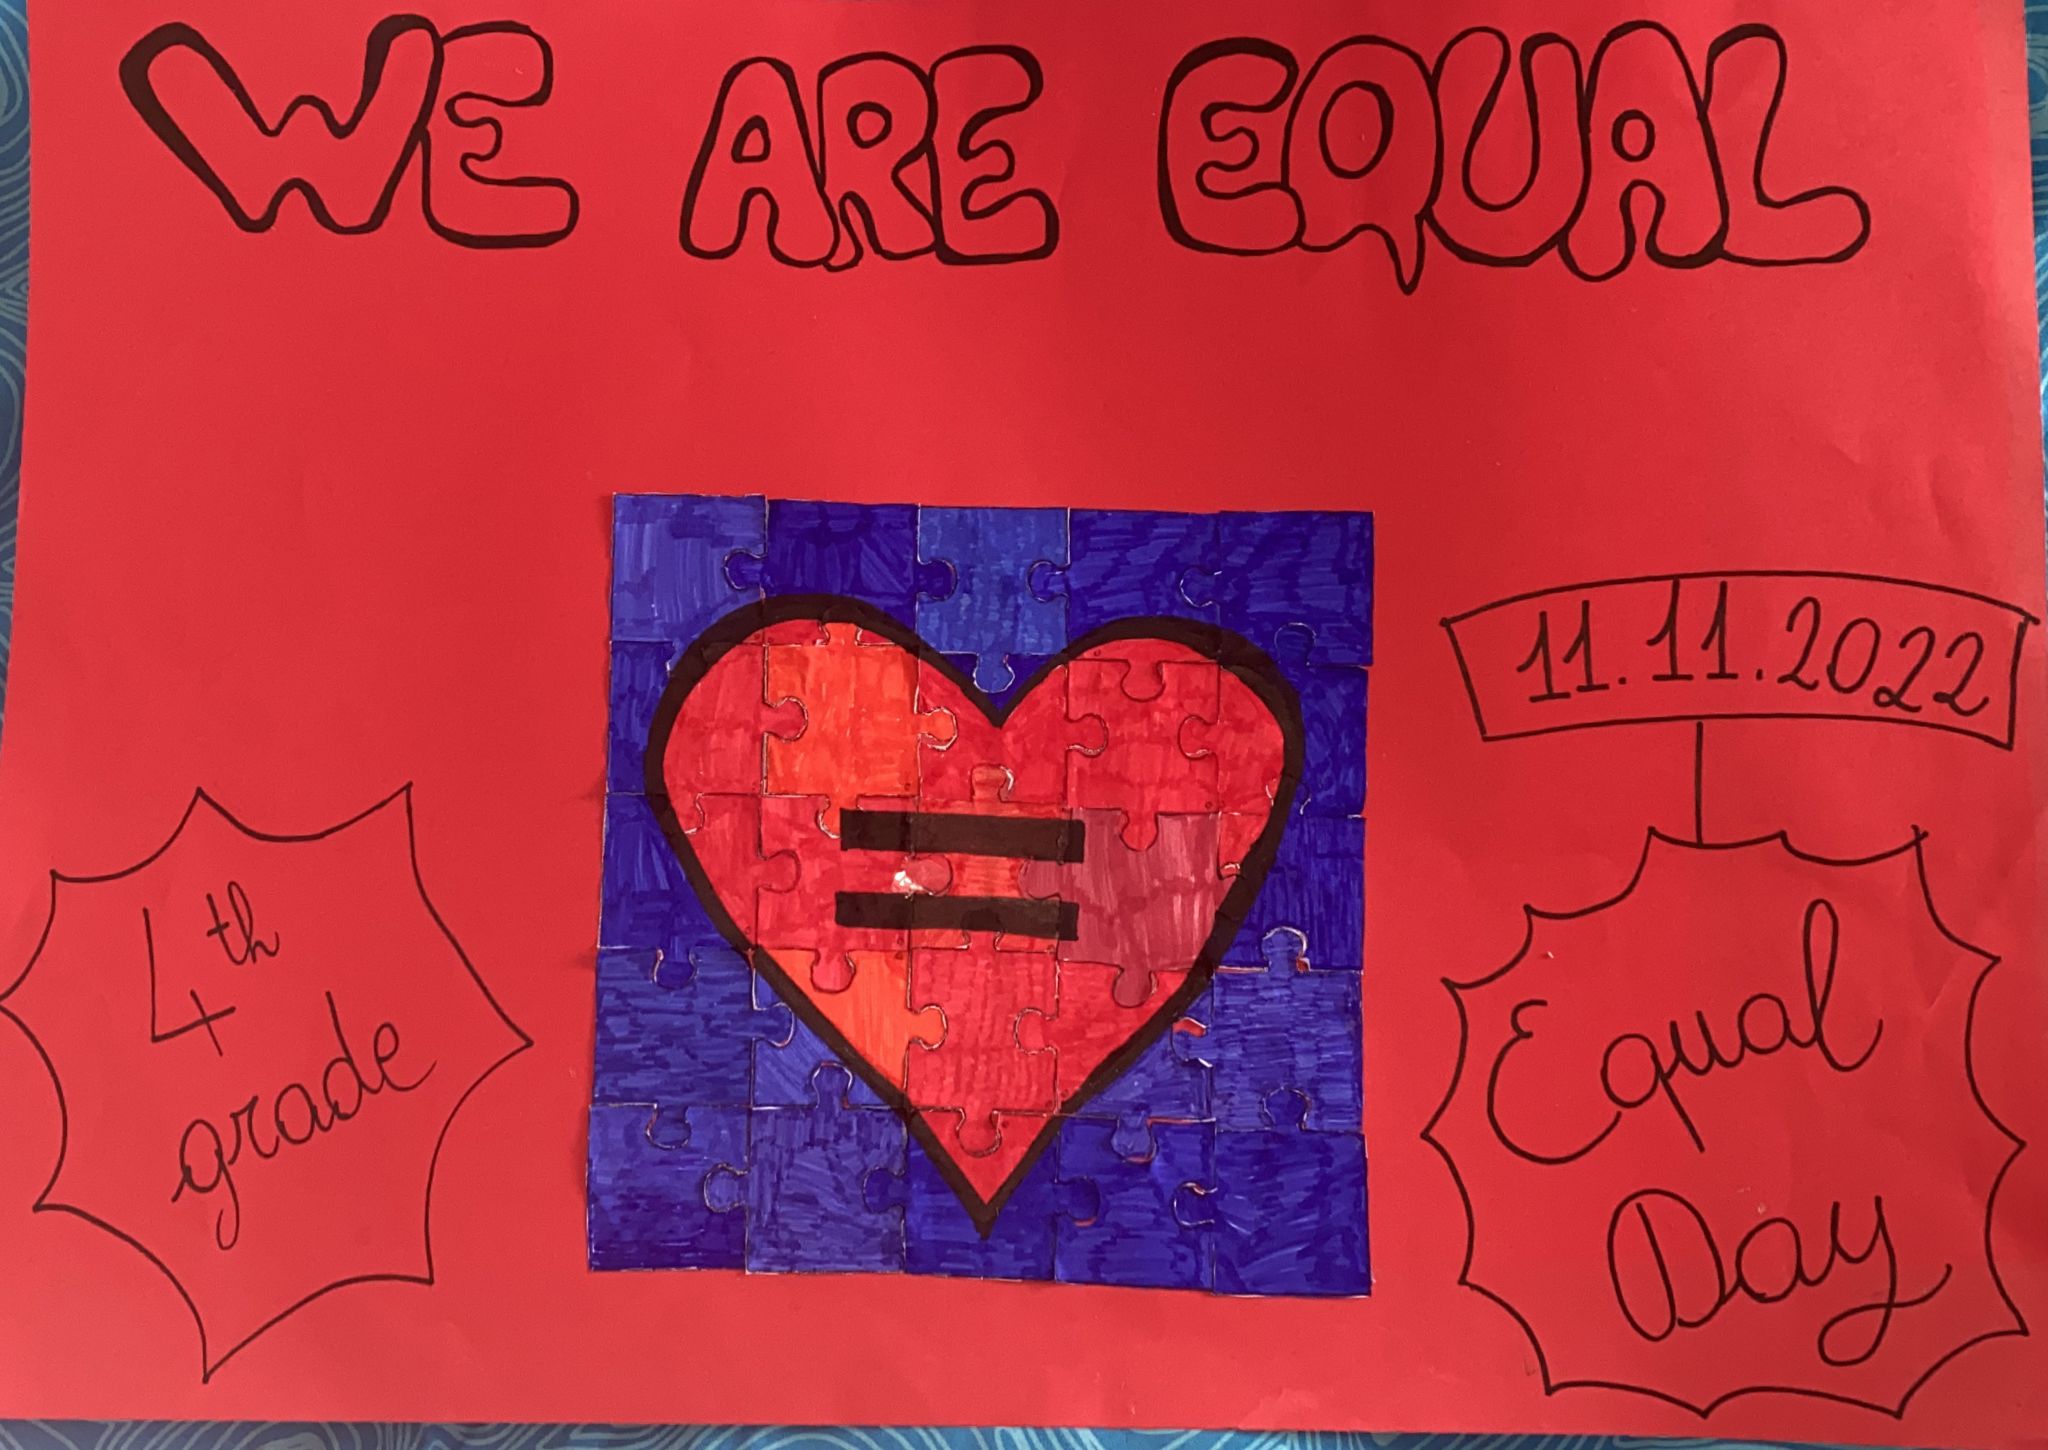 WE ARE EQUAL
11.11.2022
4th
grade
Equal
Day